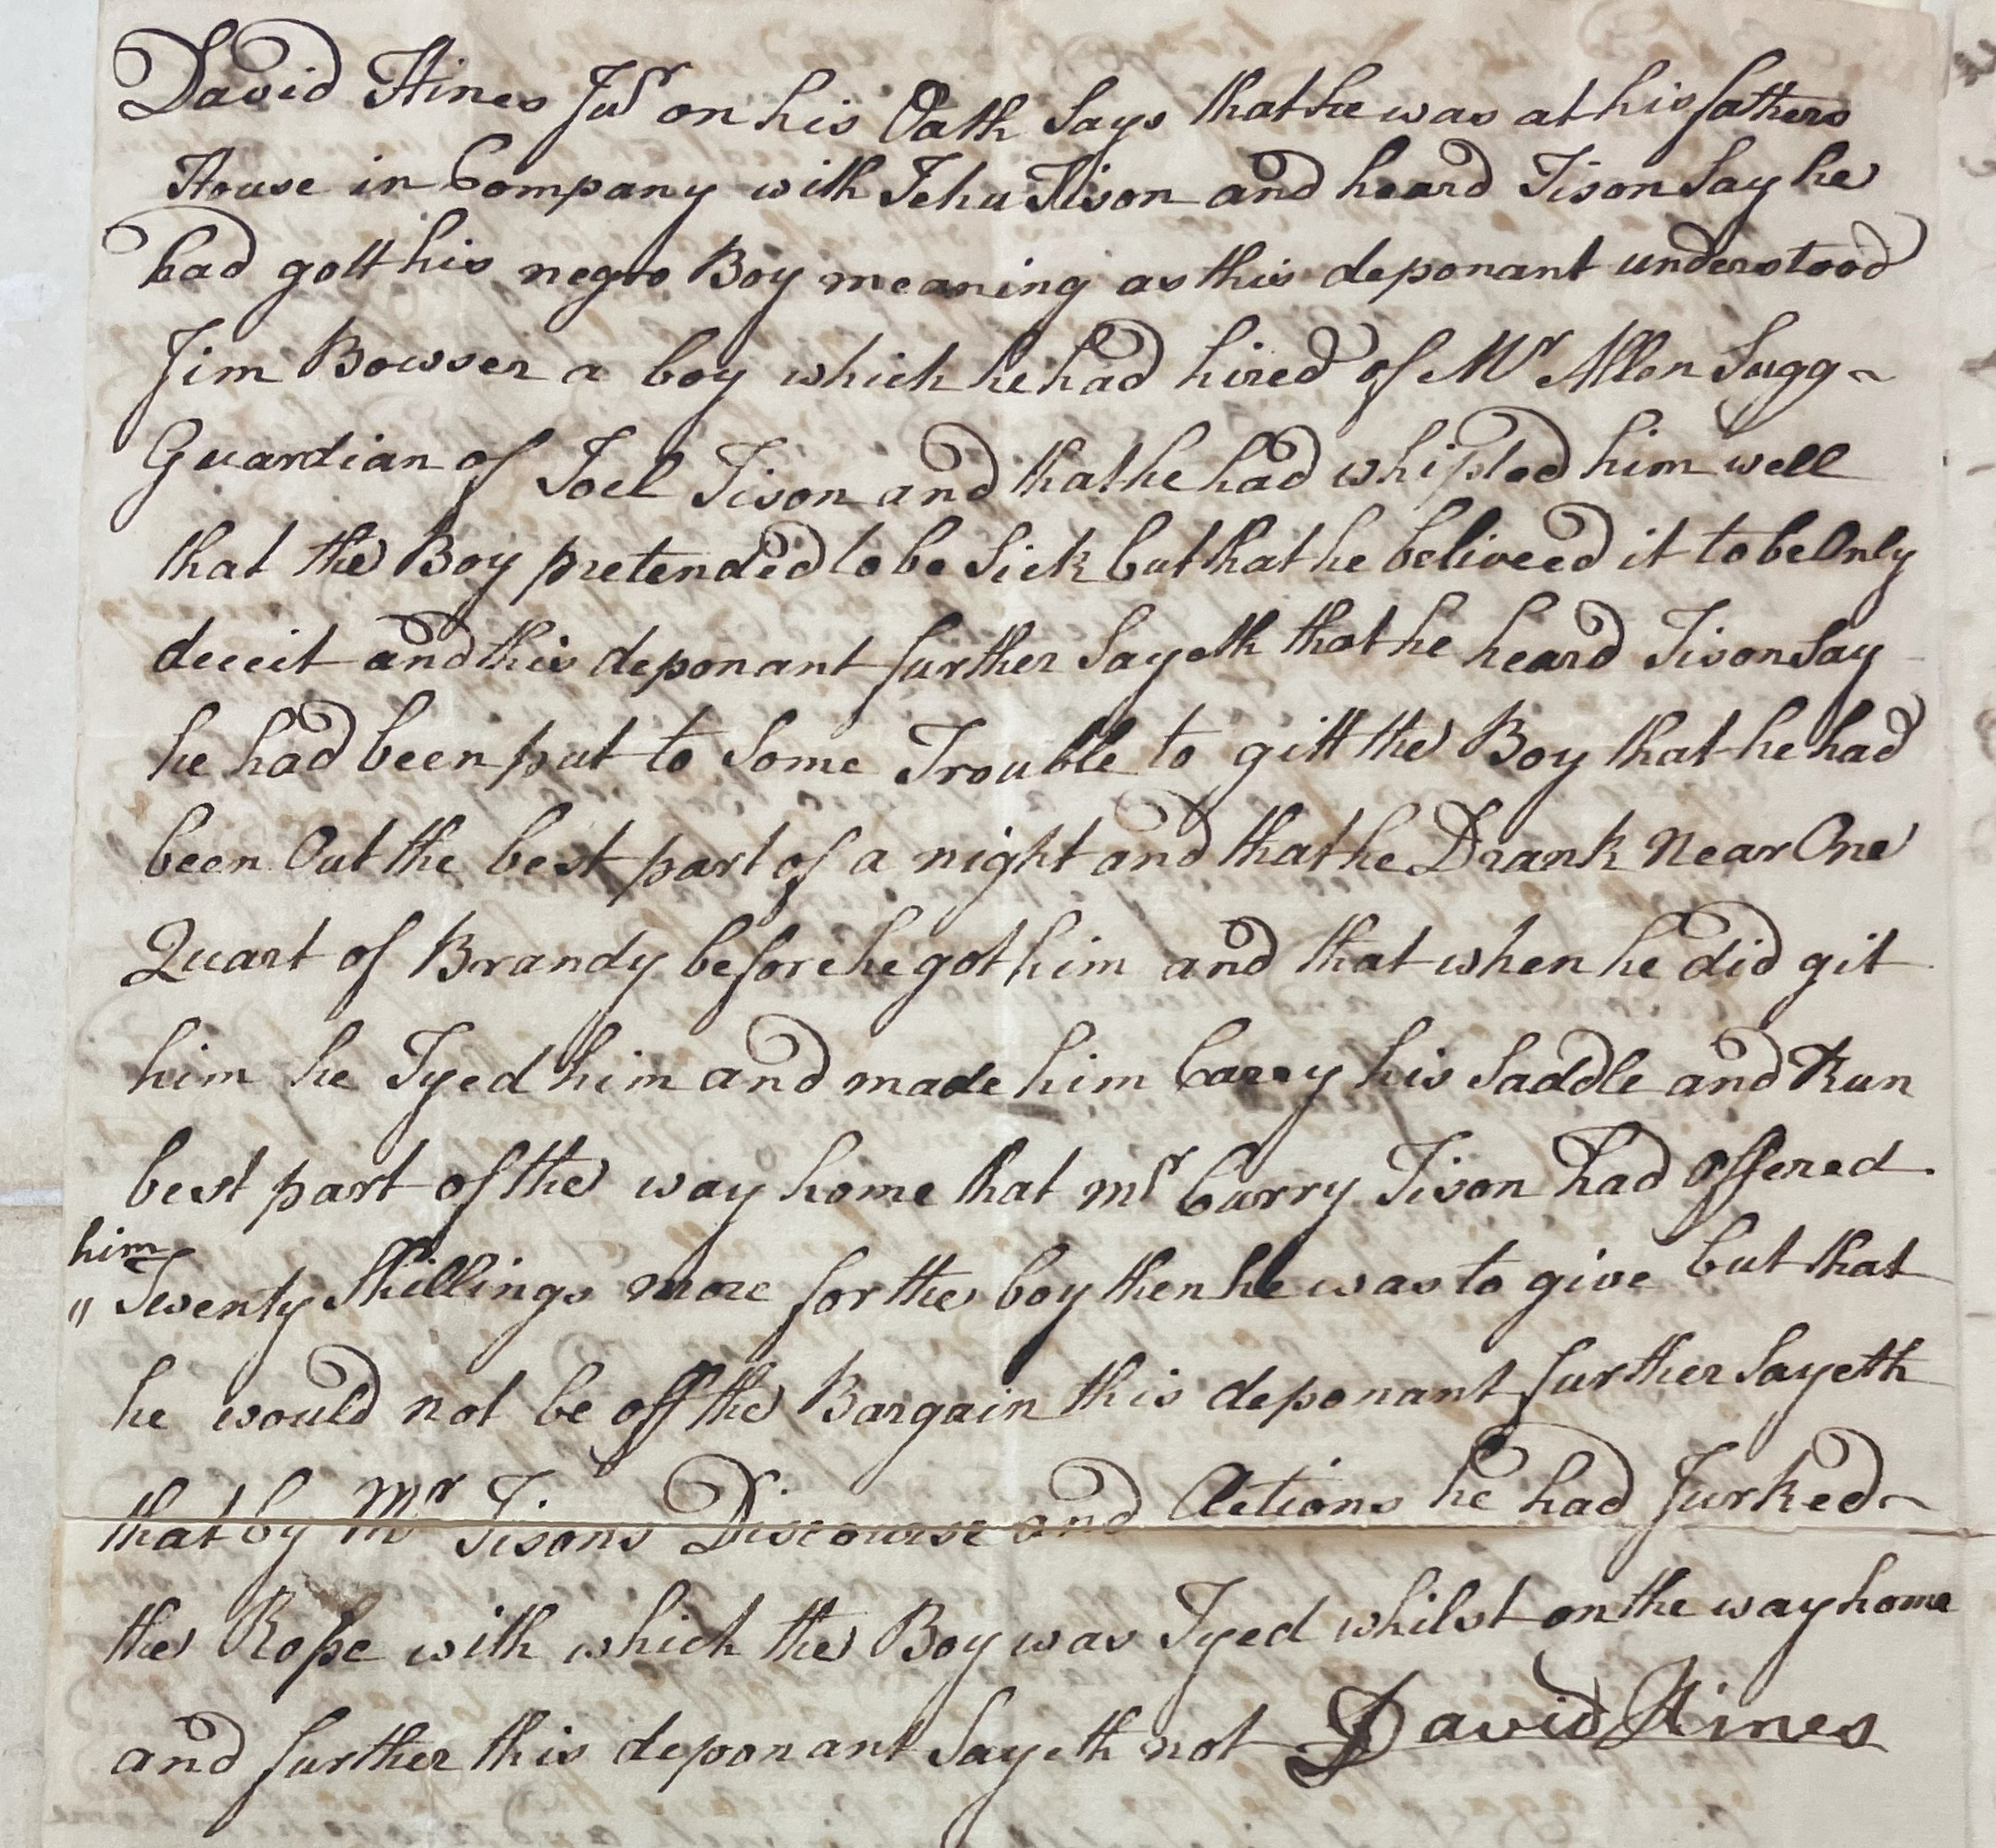 David Hines Jur on his Oath Says that he was at his fathers
House in Company with Jehu Tison and heard Tison Say he
had gott his negro Boy meaning as this deponant understood
Jim Bowser a boy which he had hired of Mr Allen Sugg
Guardian of Joel Tison and that he had whipted him well
that the Boy pretended to be Sick but that he beliveed it to be Only
deceit and this deponant further Sayeth that he heard Tison Say
he had been put to Some Trouble to gitt the Boy that he had
been Out the best part of a night and that he Drank Near One
Quart of Brandy before he got him and that when he did git
him he Tyed him and made him Carry his Saddle and Run
best part of the way home that mr Currry Tison had offered
him
" Twenty Shillings more for the boy then he was to give but that
he would not be off the Bargain this deponant further Sayeth
that by Mr Tisons Discourse and Actions he had Jurked
the Rope with which the Boy was Tyed whilst on the way home
and further this deponant Sayeth not David Hines